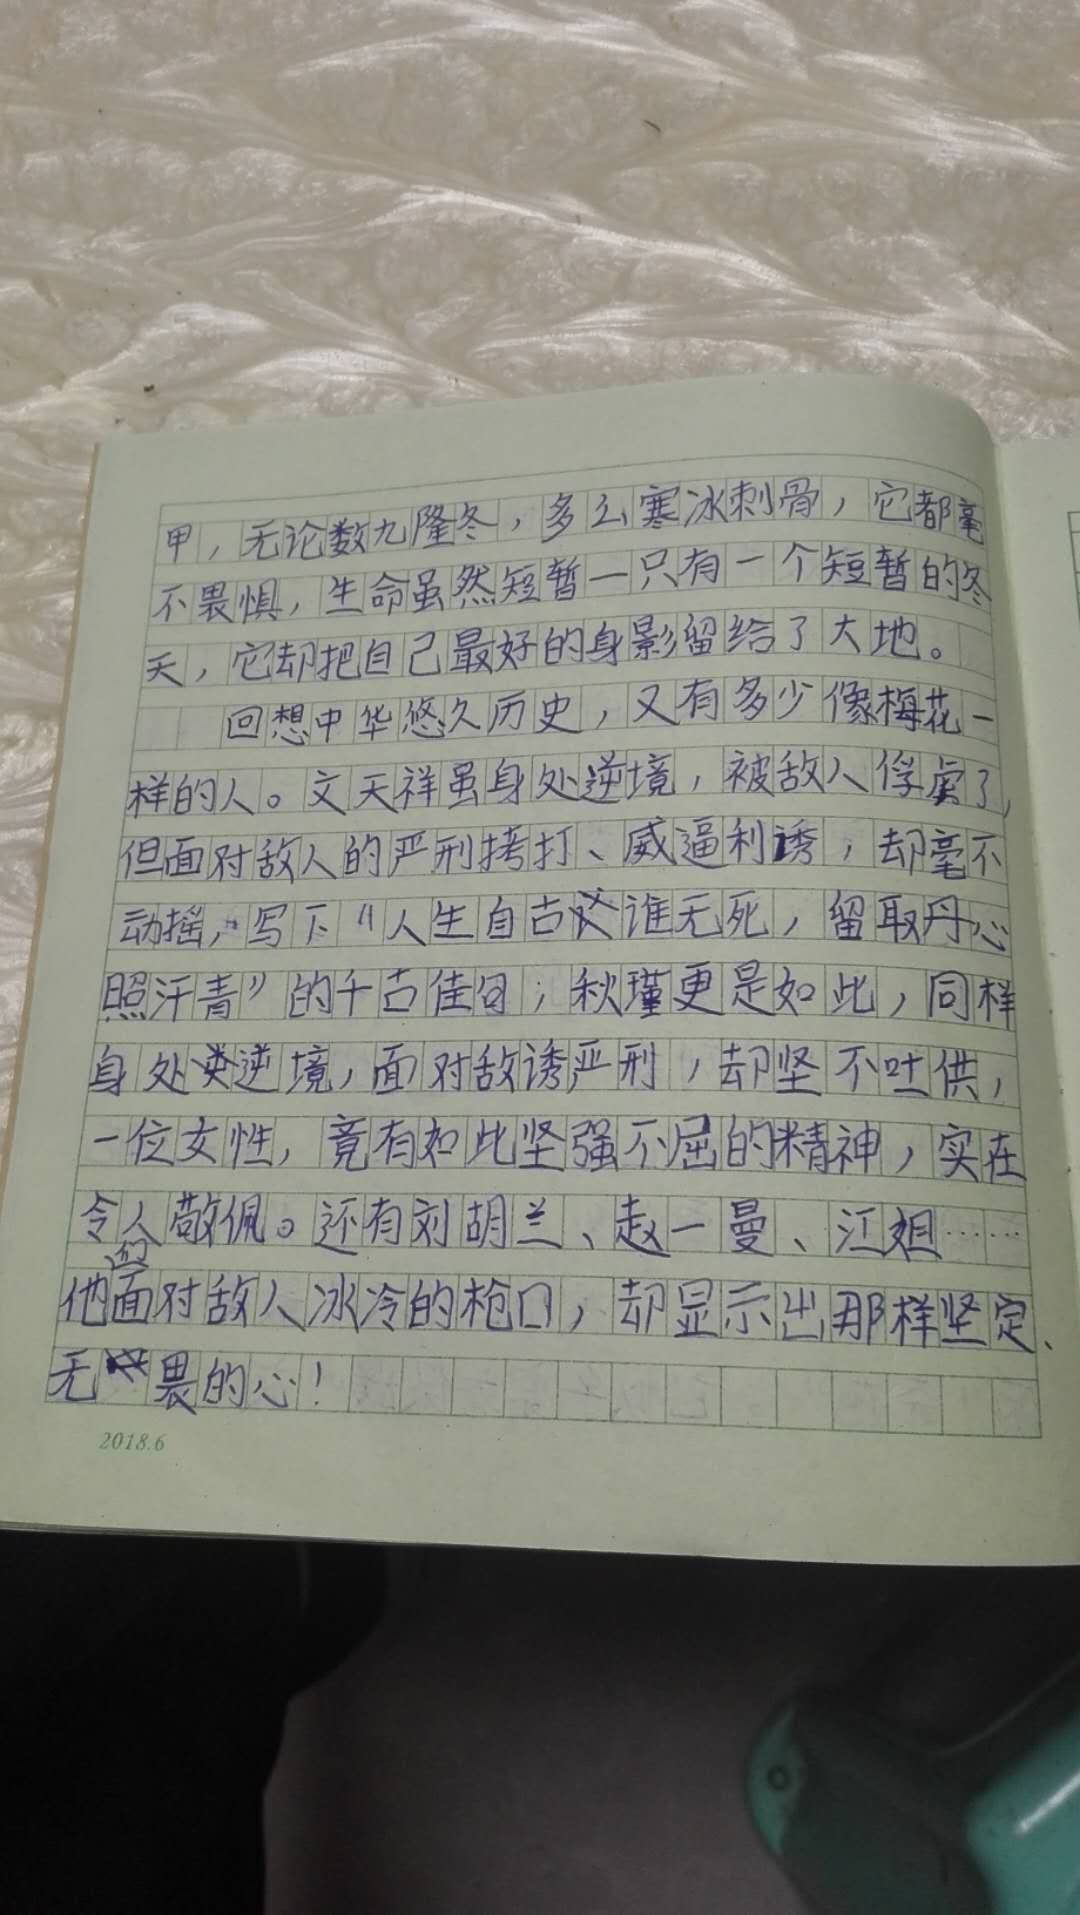 甲，无论数九隆冬，多么寒冰刺骨，它都毫
不畏惧，生命虽然短暂一只有一个短暂的冬
天，它却把自己最好的身影留给了大地。
回想中华悠久历史，又有多少像梅花一
样的人。文天祥虽身处逆境，被敌人俘虏了，
但面对敌人的严刑拷打、威逼利诱，却毫不
动摇，写下“人生自古谁无死，留取丹心
照汗青”的千古佳句；秋瑾更是如此，同样
身处逆境，面对敌诱严刑，却坚不吐供，
一位女性，竟有如此坚强不屈的精神，实在
令人敬佩。还有刘胡兰、赵一曼、江姐……
他们面对敌人冰冷的枪口，却显示出那样坚定、
无畏的心！
2018.6